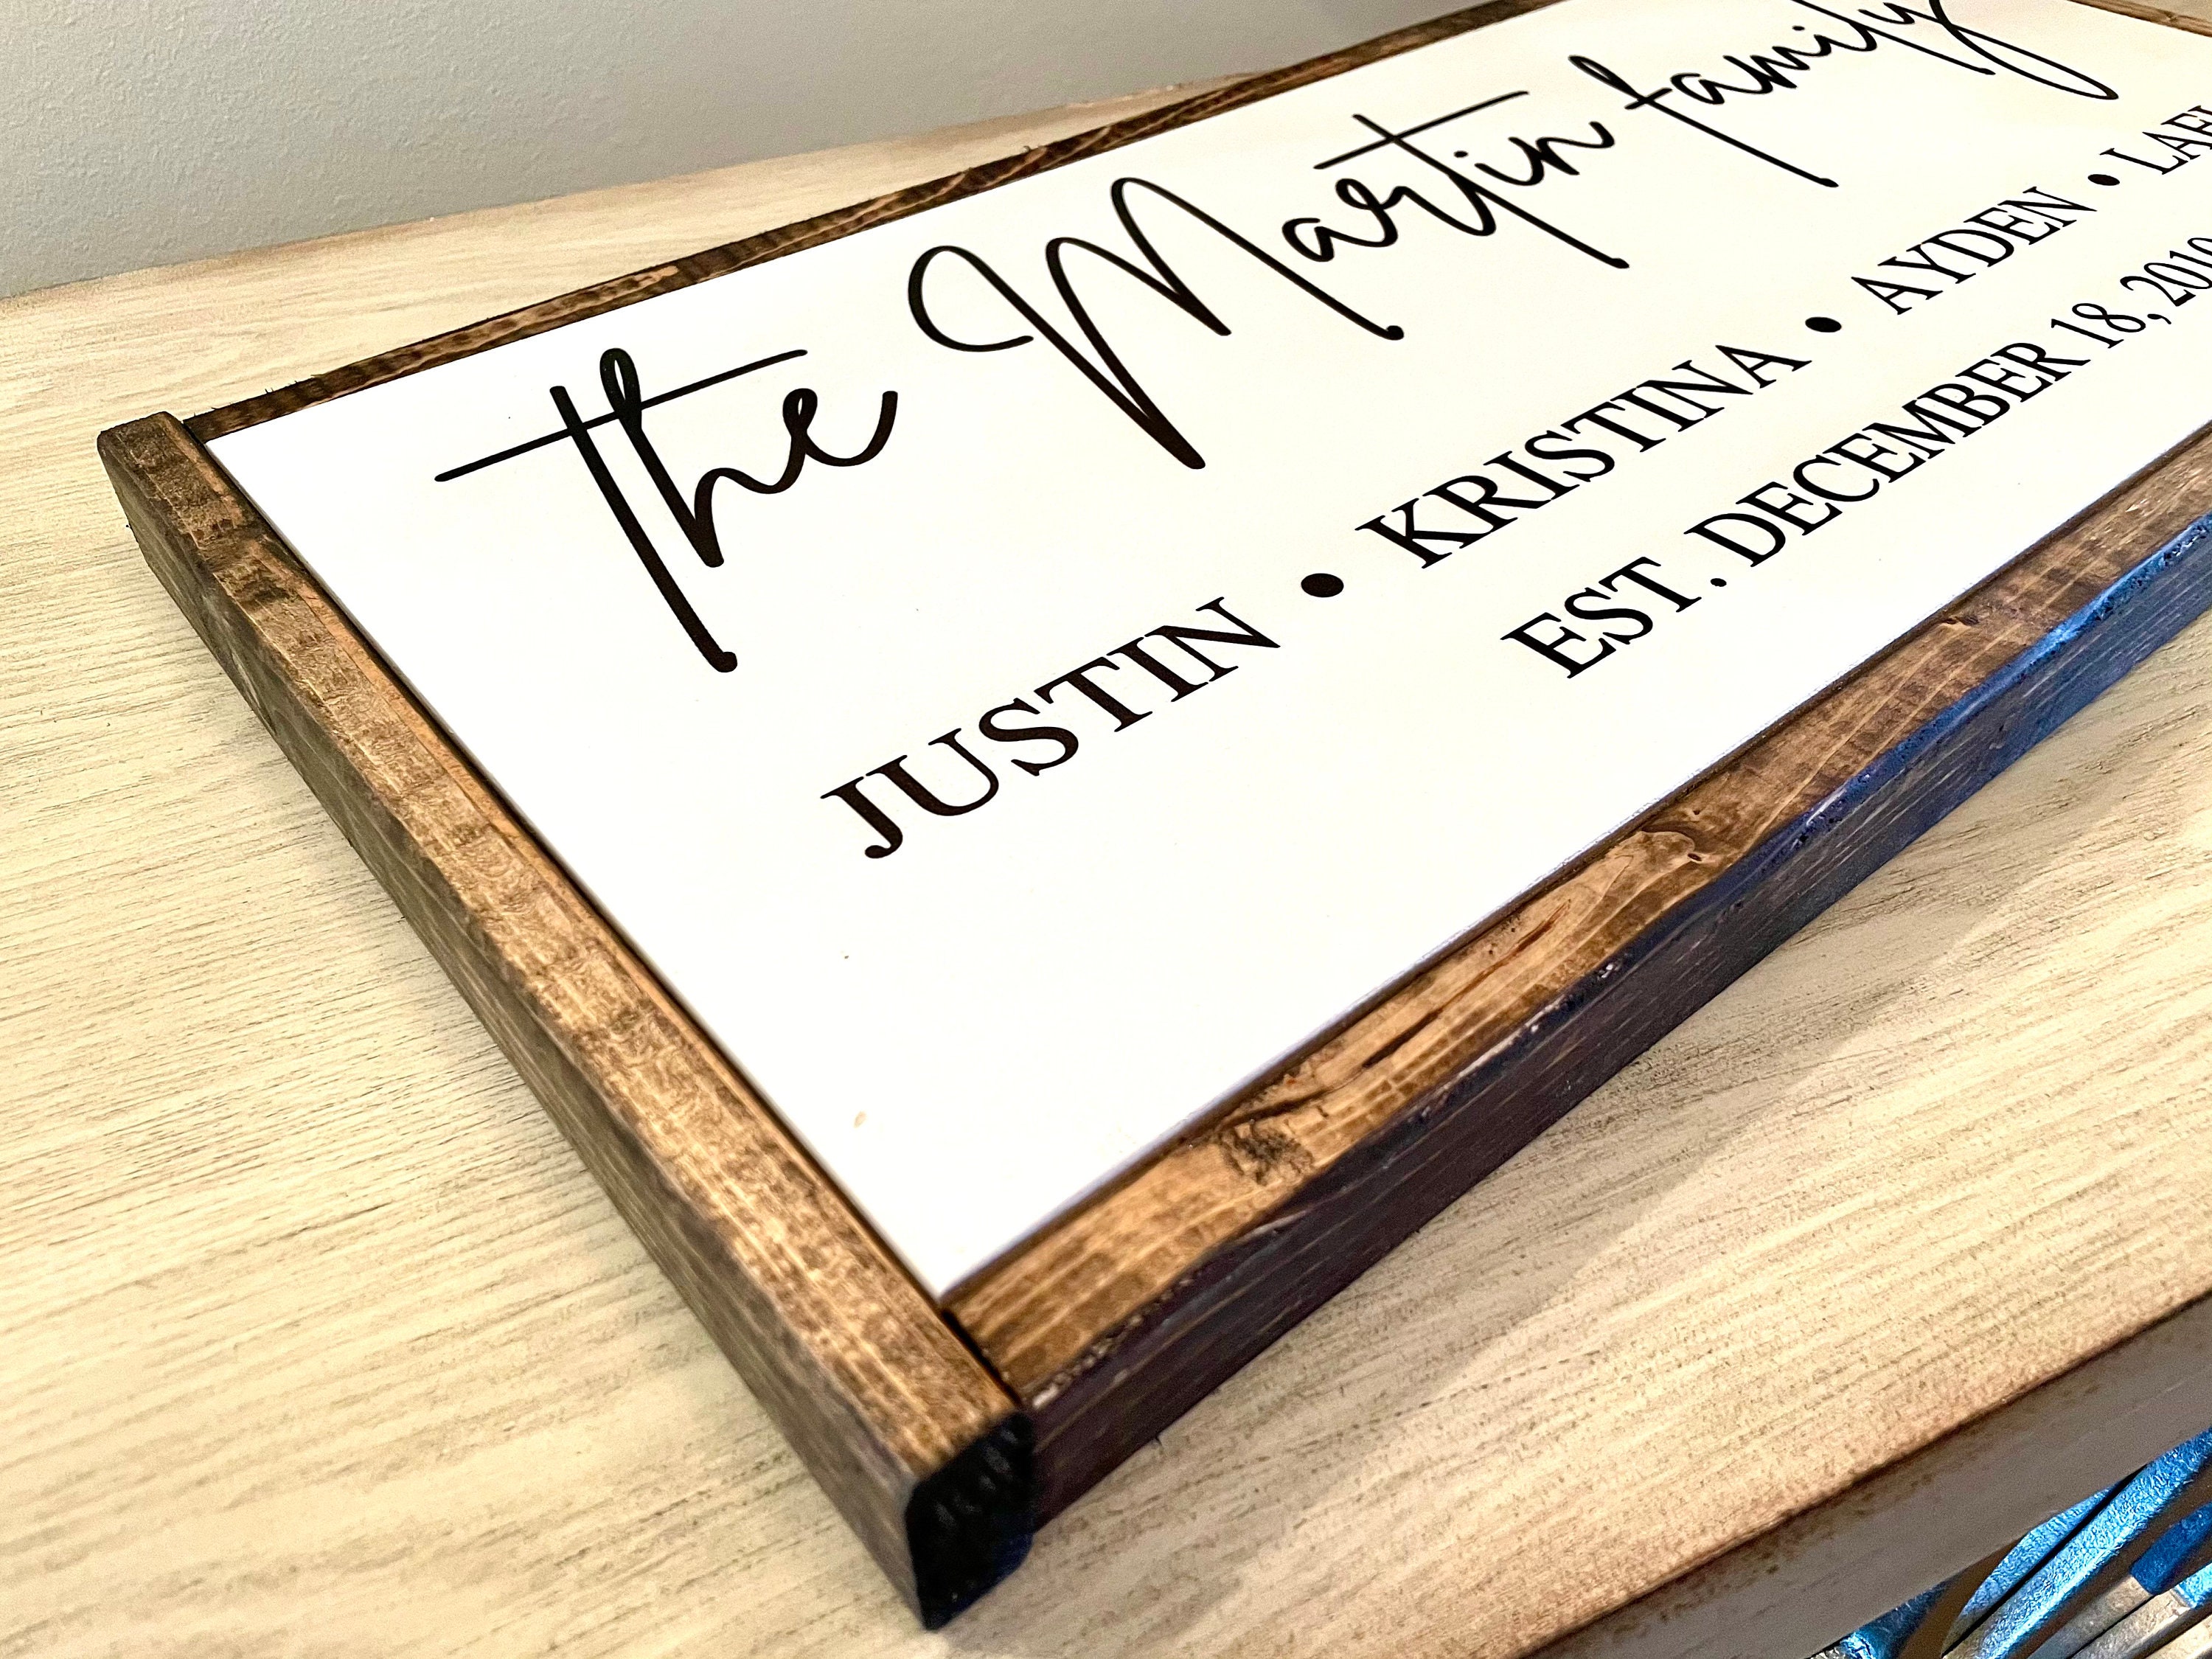 the Martin family
JUSTIN • KRISTINA • AYDEN •
EST. DECEMBER 18,